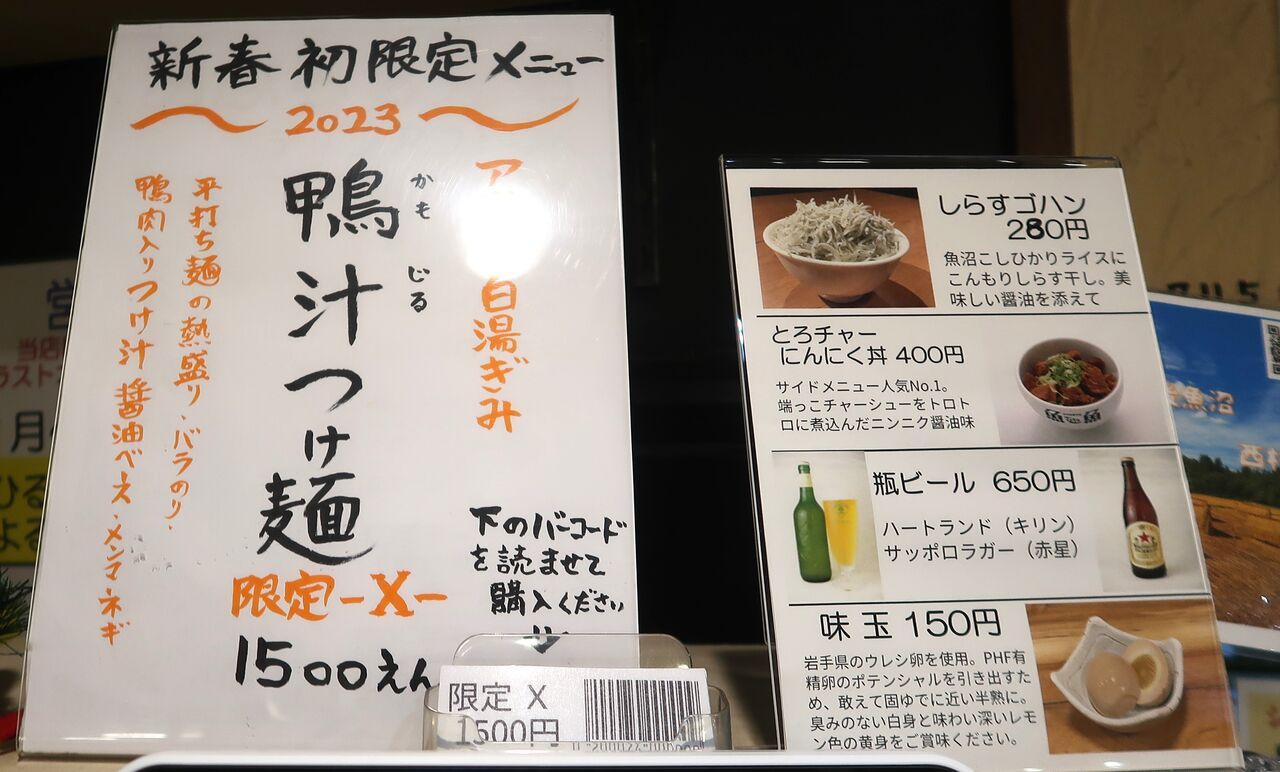 新春初限定メニュー
2023
ア
白湯ぎみ
鴨汁つけ麺
かもじる
平打ち麺の熱盛り・バラのり・
鴨肉入りつけ汁醤油ベース・メンマ・ネギ
限定-X-
1500えん
下のバーコード
を読ませて
購入ください
限定 X
1500円
しらすゴハン
280円
魚沼こしひかりライスに
こんもりしらす干し。美
味しい醤油を添えて
とろチャー
にんにく丼 400円
サイドメニュー人気No.1。
端っこチャーシューをトロト
ロに煮込んだニンニク醤油味
瓶ビール 650円
ハートランド（キリン）
サッポロラガー（赤星）
味玉 150円
岩手県のウレシ卵を使用。PHF有
精卵のポテンシャルを引き出すた
め、敢えて固ゆでに近い半熟に。
臭みのない白身と味わい深いレモ
ン色の黄身をご賞味ください。
営
当店
ラスト
月
ひる
よる
魚沼
西